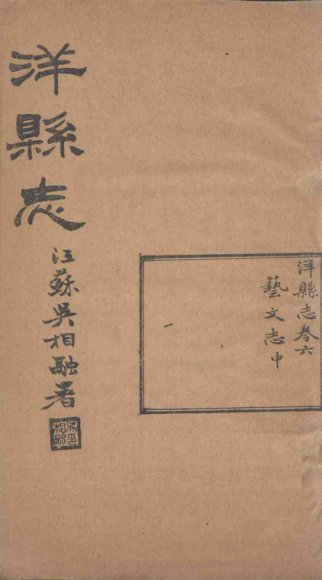 洋縣志卷六
藝文志中
洋縣志
江蘇吳相融署